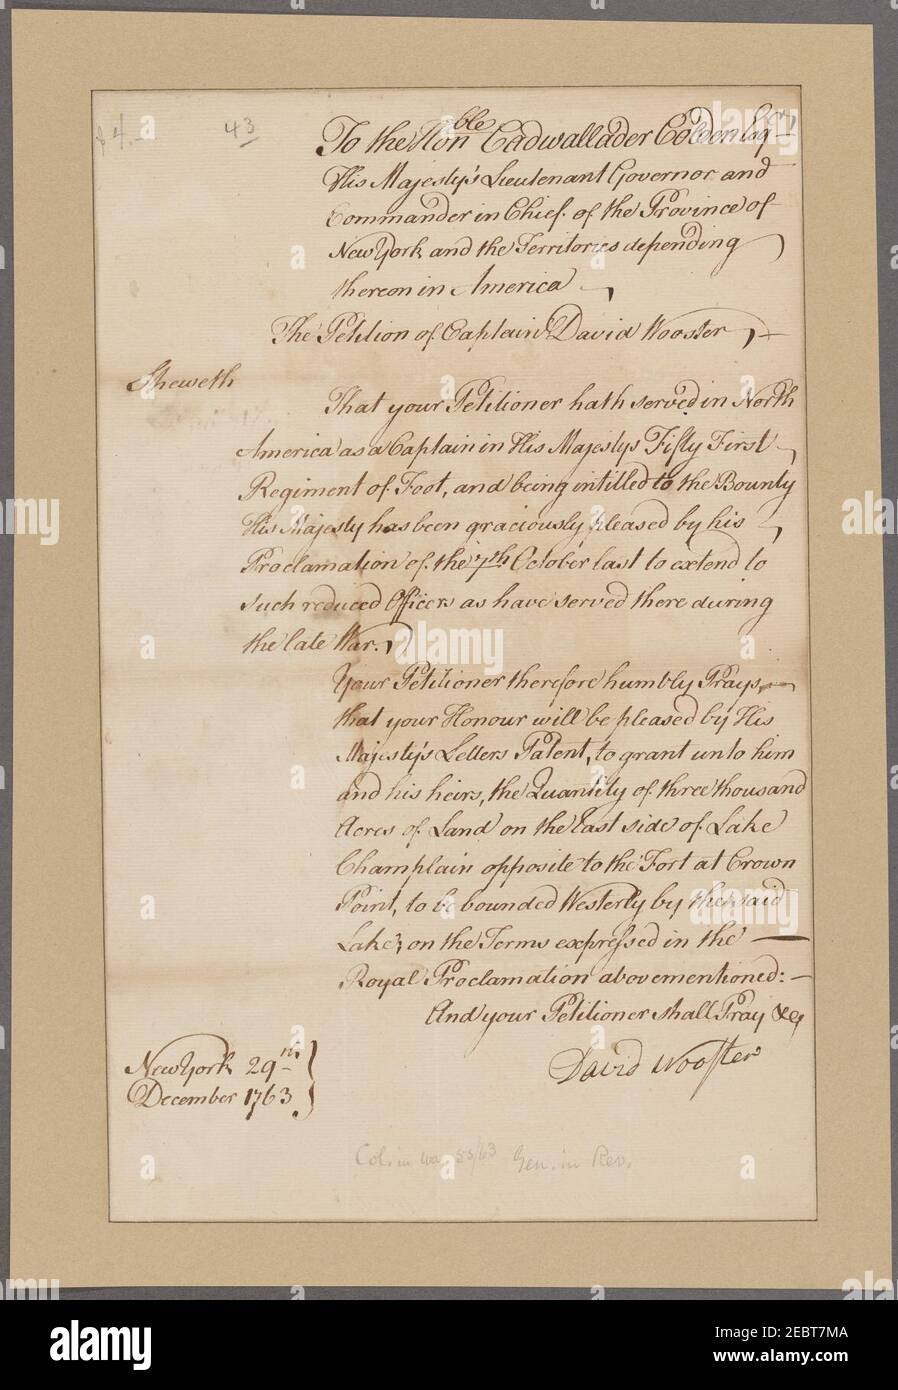 $4.-
43
To the Honble Cadwallader Colden Esqr
His Majesty's Lieutenant Governor and
Commander in Chief of the Province of
New York and the Territories depending
thereon in America
The Petition of Captain David Wooster
Sheweth
That your Petitioner hath served in North
America as a Captain in His Majestys Fifty First
Regiment of Foot, and being intitled to the Bounty
His Majesty has been graciously pleased by his
Proclamation of the 7th October last to extend to
such reduced Officers as have served there during
the late War.
Your Petitioner therefore humbly Prays
that your Honour will be pleased by His
Majesty's Letters Patent, to grant unto him
and his heirs, the Quantity of three thousand
Acres of Land on the East side of Lake
Champlain opposite to the Fort at Crown
Point, to be bounded Westerly by the said
Lake, on the Terms expressed in the
Royal Proclamation abovementioned:
And your Petitioner shall Pray &c
David Wooster
New York 29th
December 1763
Col. in 63 Gen. in Rev.
alamy
a
alamy
www.alamy.com
Image ID: 2EBT7MA